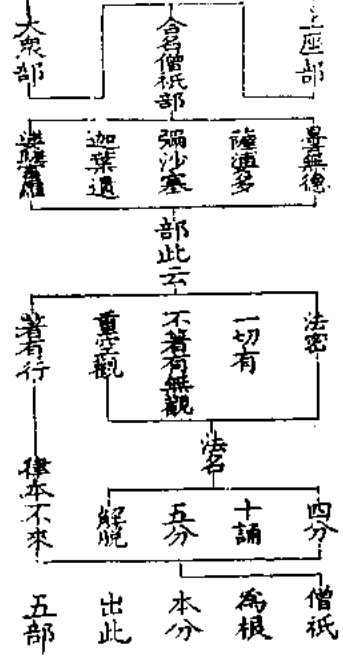 上座部
合名僧祇部
大眾部
曇無德
薩婆多
彌沙塞
迦葉遺
婆麤富羅
部此云
法密
一切有
不著有無觀
重空觀
著有行
法名
四分
十誦
五分
解脫
律本不來
僧祇
為根
本分
出此
五部